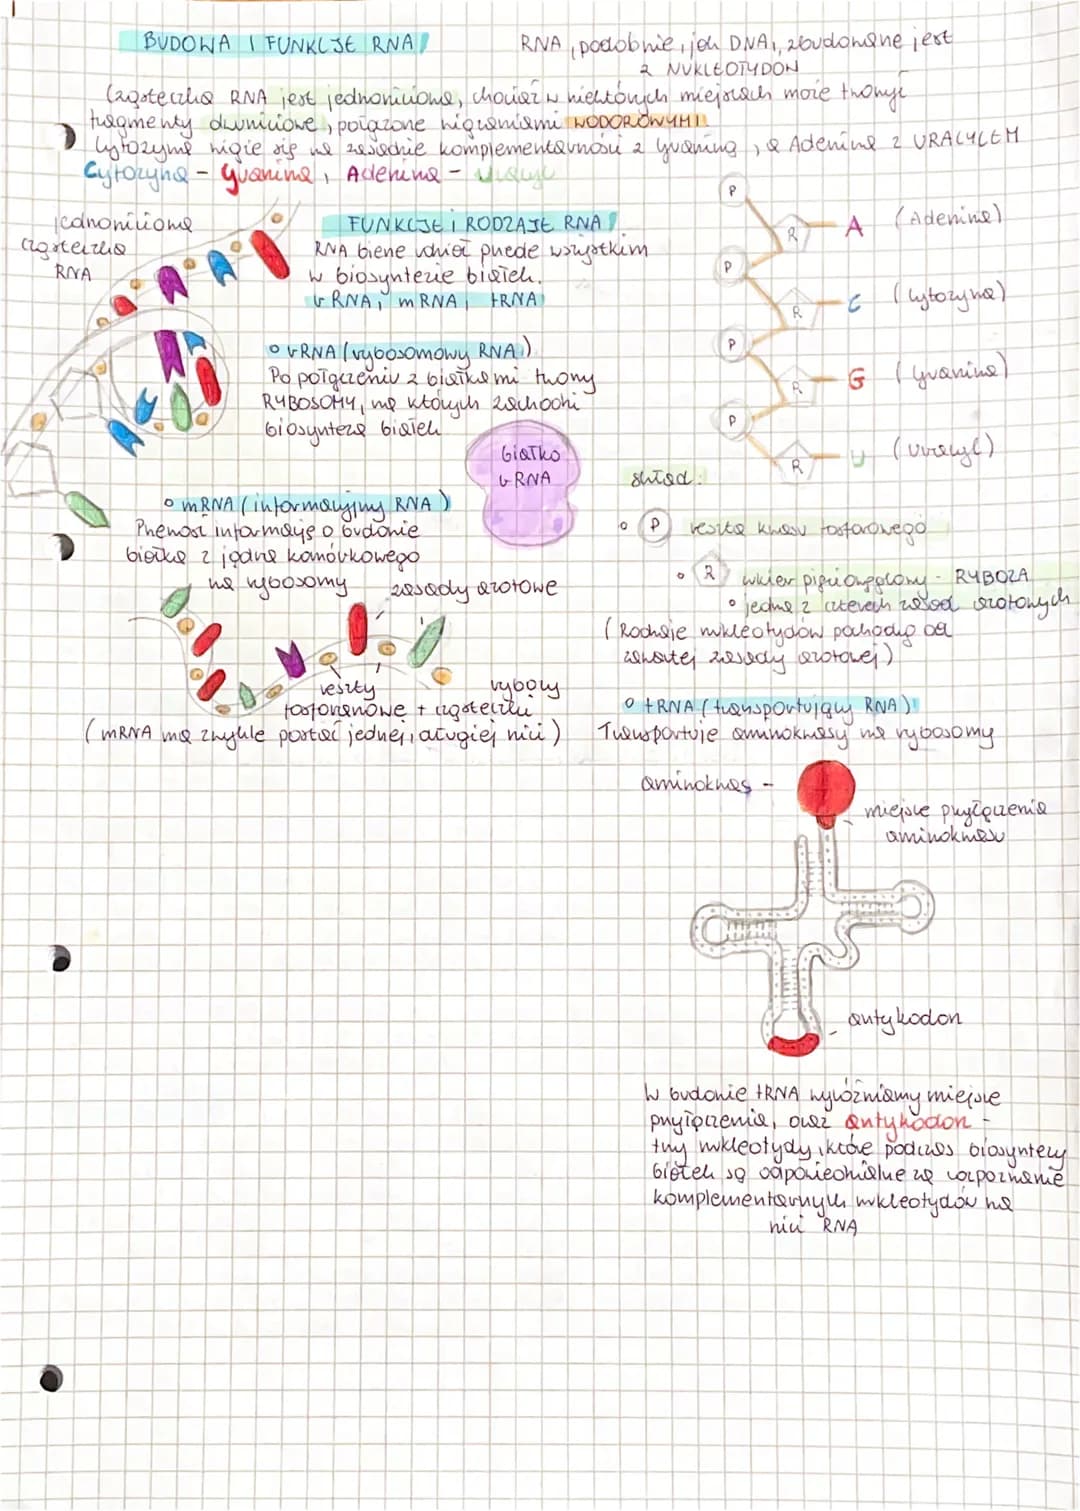 BUDOWA I FUNKCJE RNA
RNA, podobnie, jak DNA, zbudowane jest
z NUKLEOTYDÓW
Cząsteczka RNA jest jednoniciowa, chociaż w niektórych miejscach może tworzyć
fragmenty dwuniciowe, połączone wiązaniami WODOROWYMI
Cytozyma wiąże się na zasadzie komplementarności z guaniną, a Adenina z URACYLEM
Cytozyna - guanina, Adenina - uracyl
jednoniciowa
cząsteczka
RNA
FUNKCJE i RODZAJE RNA
RNA bierze udział przede wszystkim
w biosyntezie białek.
rRNA, mRNA, tRNA
rRNA (rybosomowy RNA)
Po połączeniu z białkami tworzy
RYBOSOMY, na których zachodzi
biosynteza białek
białko
rRNA
mRNA (informacyjny RNA)
Przenosi informację o budowie
białka z jądra komórkowego
na rybosomy
zasady azotowe
reszty
fosforanowe + cząsteczki
rybozy
(mRNA ma zwykle postać jednej, długiej nici)
P
R
A (Adenina)
P
R
C (Cytozyna)
P
R
G (guanina)
P
R
U (uracyl)
skład:
P reszta kwasu fosforowego
R cukier pięciowęglowy - RYBOZA
jedna z czterech zasad azotowych
(Rodzaje nukleotydów pochodzą od
zawartej zasady azotowej)
tRNA (transportujący RNA)
Transportuje aminokwasy na rybosomy
aminokwas -
miejsce przyłączenia
aminokwasu
antykodon
W budowie tRNA wyróżniamy miejsce
przyłączenia, oraz antykodon -
trzy nukleotydy, które podczas biosyntezy
białek są odpowiedzialne za rozpoznanie
komplementarnych nukleotydów na
nici RNA